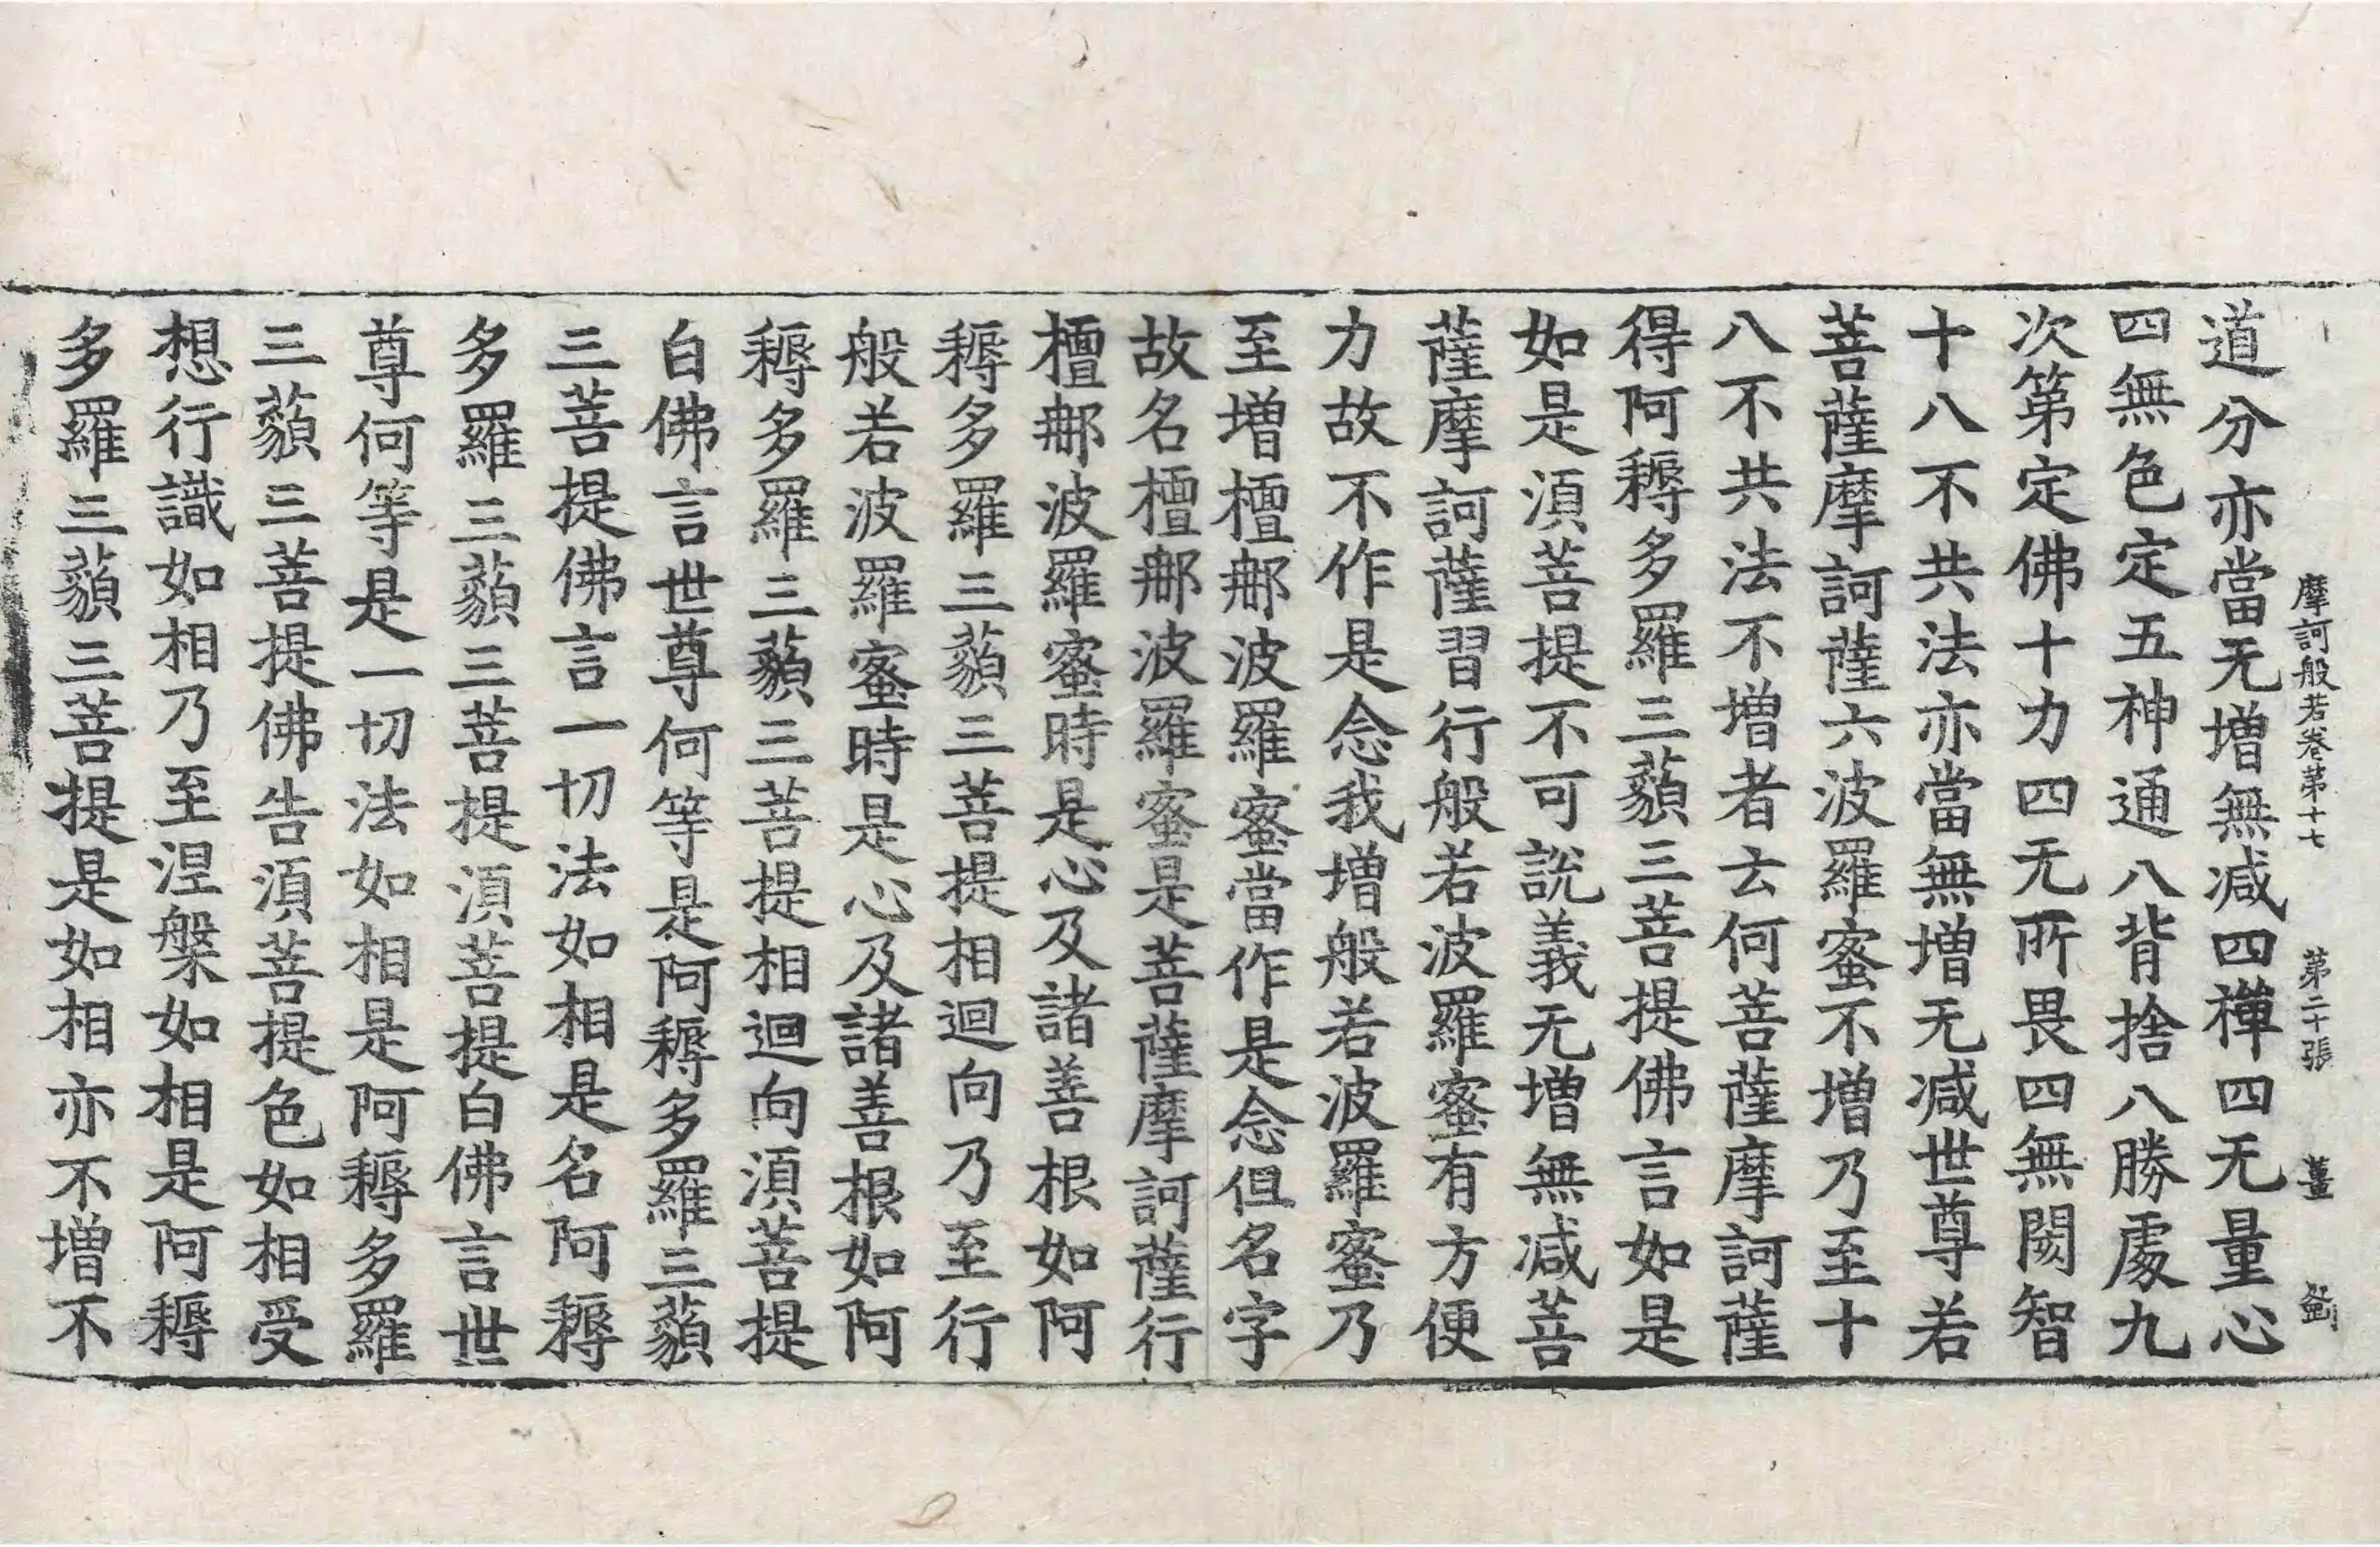 摩訶般若卷第十七　第二十張　薑
道分亦當无增無減四禪四无量心
四無色定五神通八背捨八勝處九
次第定佛十力四无所畏四無閡智
十八不共法亦當無增无減世尊若
菩薩摩訶薩六波羅蜜不增乃至十
八不共法不增者云何菩薩摩訶薩
得阿耨多羅三藐三菩提佛言如是
如是湏菩提不可說義无增無減菩
薩摩訶薩習行般若波羅蜜有方便
力故不作是念我增般若波羅蜜乃
至增檀那波羅蜜當作是念但名字
故名檀那波羅蜜是菩薩摩訶薩行
檀那波羅蜜時是心及諸善根如阿
耨多羅三藐三菩提相迴向乃至行
般若波羅蜜時是心及諸善根如阿
耨多羅三藐三菩提相迴向湏菩提
白佛言世尊何等是阿耨多羅三藐
三菩提佛言一切法如相是名阿耨
多羅三藐三菩提湏菩提白佛言世
尊何等是一切法如相是阿耨多羅
三藐三菩提佛告湏菩提色如相受
想行識如相乃至涅槃如相是阿耨
多羅三藐三菩提是如相亦不增不